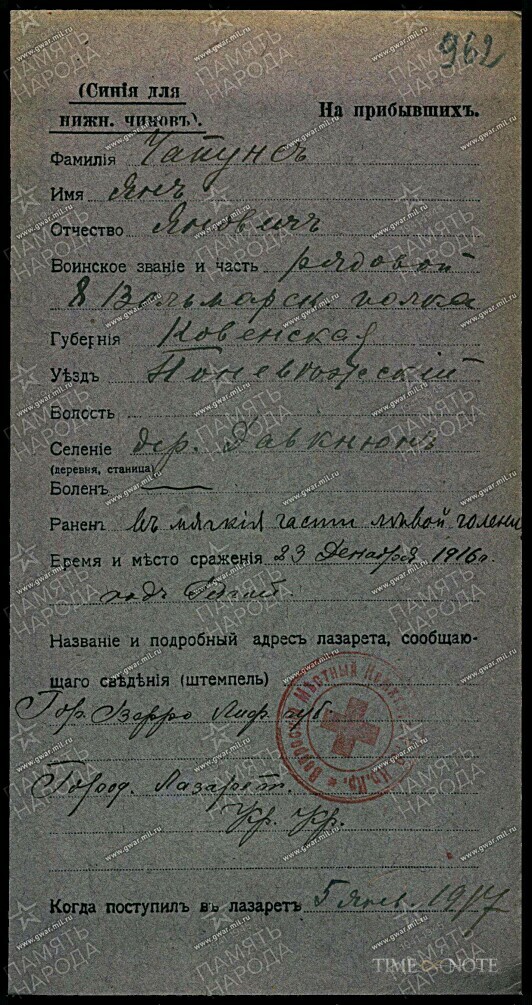 962
(Синія для
нижн. чиновъ).
На прибывшихъ.
Фамилія Чапунсъ
Имя Янъ
Отчество Яновичъ
Воинское званіе и часть рядовой
8 Вольмарск. полка
Губернія Ковенская
Уѣздъ Поневѣжскій
Волость
Селеніе дер. Давкнюнъ
(деревня, станица)
Боленъ
Раненъ въ мягкія части лѣвой голени
Время и мѣсто сраженія 23 Декабря 1916 г.
подъ
Названіе и подробный адресъ лазарета, сообщаю-
щаго свѣдѣнія (штемпель)
Гор. Верро Лиф. губ.
Город. Лазарет.
Кр. Кр.
Когда поступилъ въ лазаретъ 5 янв. 1917
TIME NOTE
ПАМЯТЬ НАРОДА
www.gwar.mil.ru